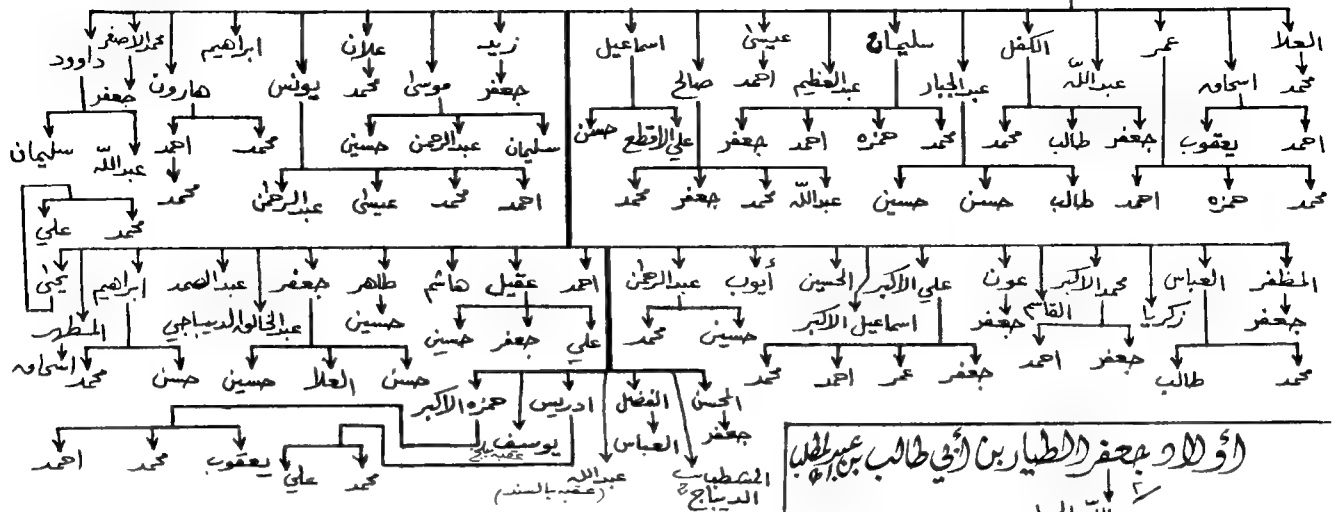 العلا عمر الكفل سليمان عيسىٰ اسماعيل زيد علان ابراهيم محمد الاصغر داوود
محمد اسحاق عبد اللّه عبد الجبار عبد العظيم احمد صالح جعفر موسىٰ محمد يونس هارون جعفر
احمد يعقوب جعفر طالب محمد محمد همزه احمد جعفر علي الاقطع حسن سليمان عبد الرحمن حسين محمد احمد عبد اللّه سليمان
محمد همزه احمد طالب حسن حسين عبد اللّه محمد جعفر محمد احمد محمد عيسىٰ عبد الرحمٰن محمد محمد علي
المظفر العباس محمد الاكبر عون علي الاكبر الحسين أيوب عبد الرحمٰن احمد عقيل هاشم طاهر جعفر عبد الصمد ابراهيم يحيىٰ
جعفر زكريا القاسم جعفر اسماعيل الاكبر حسين محمد علي جعفر حسين حسين عبد الخالق الديباجي المطهر
محمد طالب جعفر احمد جعفر عمر احمد محمد حسن العلا حسين حسن محمد اسحاق
المحسن الفضل ادريس همزه الاكبر
جعفر العباس يوسف
محمد علي يعقوب محمد احمد
الديباج عبد اللّه
(عقبه بالسند)
أولاد جعفر الطيار بن أبي طالب بن عبد المطلب